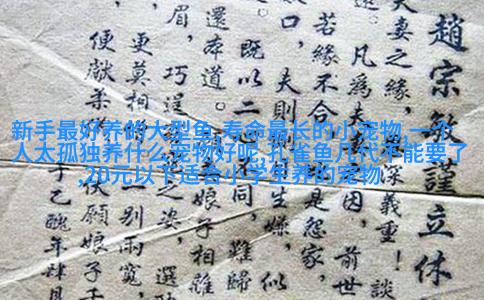 新手最好养的大型鱼,寿命最长的小宠物,一个
人太孤独养什么宠物好呢,孔雀鱼几代不能要了
,20元以下适合小学生养的宠物
趙宗 謹立休
夫妻之緣, 深義重!談
凡為夫 因,前世
若緣不合 是怨家,
口,夫則 生嫌,似
既以二 同,難歸
還本道。 娘子相離
眉,巧逞 之姿,選
更莫相 一別兩寬,
便獻柔 願娘子千
于乙醜年肆月